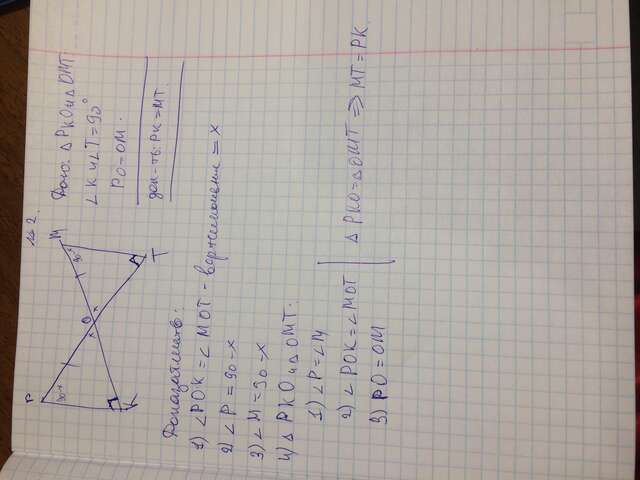 № 2.
P
M
90-x
90-x
x
O
x
K
T
Дано: △ PKO и △ OMT
∠ K и ∠ T = 90°
PO = OM.
док-ть: PK = MT.
Доказательств:
1) ∠ POK = ∠ MOT - вертикальные = x
2) ∠ P = 90 - x
3) ∠ M = 90 - x
4) △ PKO и △ OMT:
1) ∠ P = ∠ M
2) ∠ POK = ∠ MOT
3) PO = OM
△ PKO = △ OMT ⇒ MT = PK